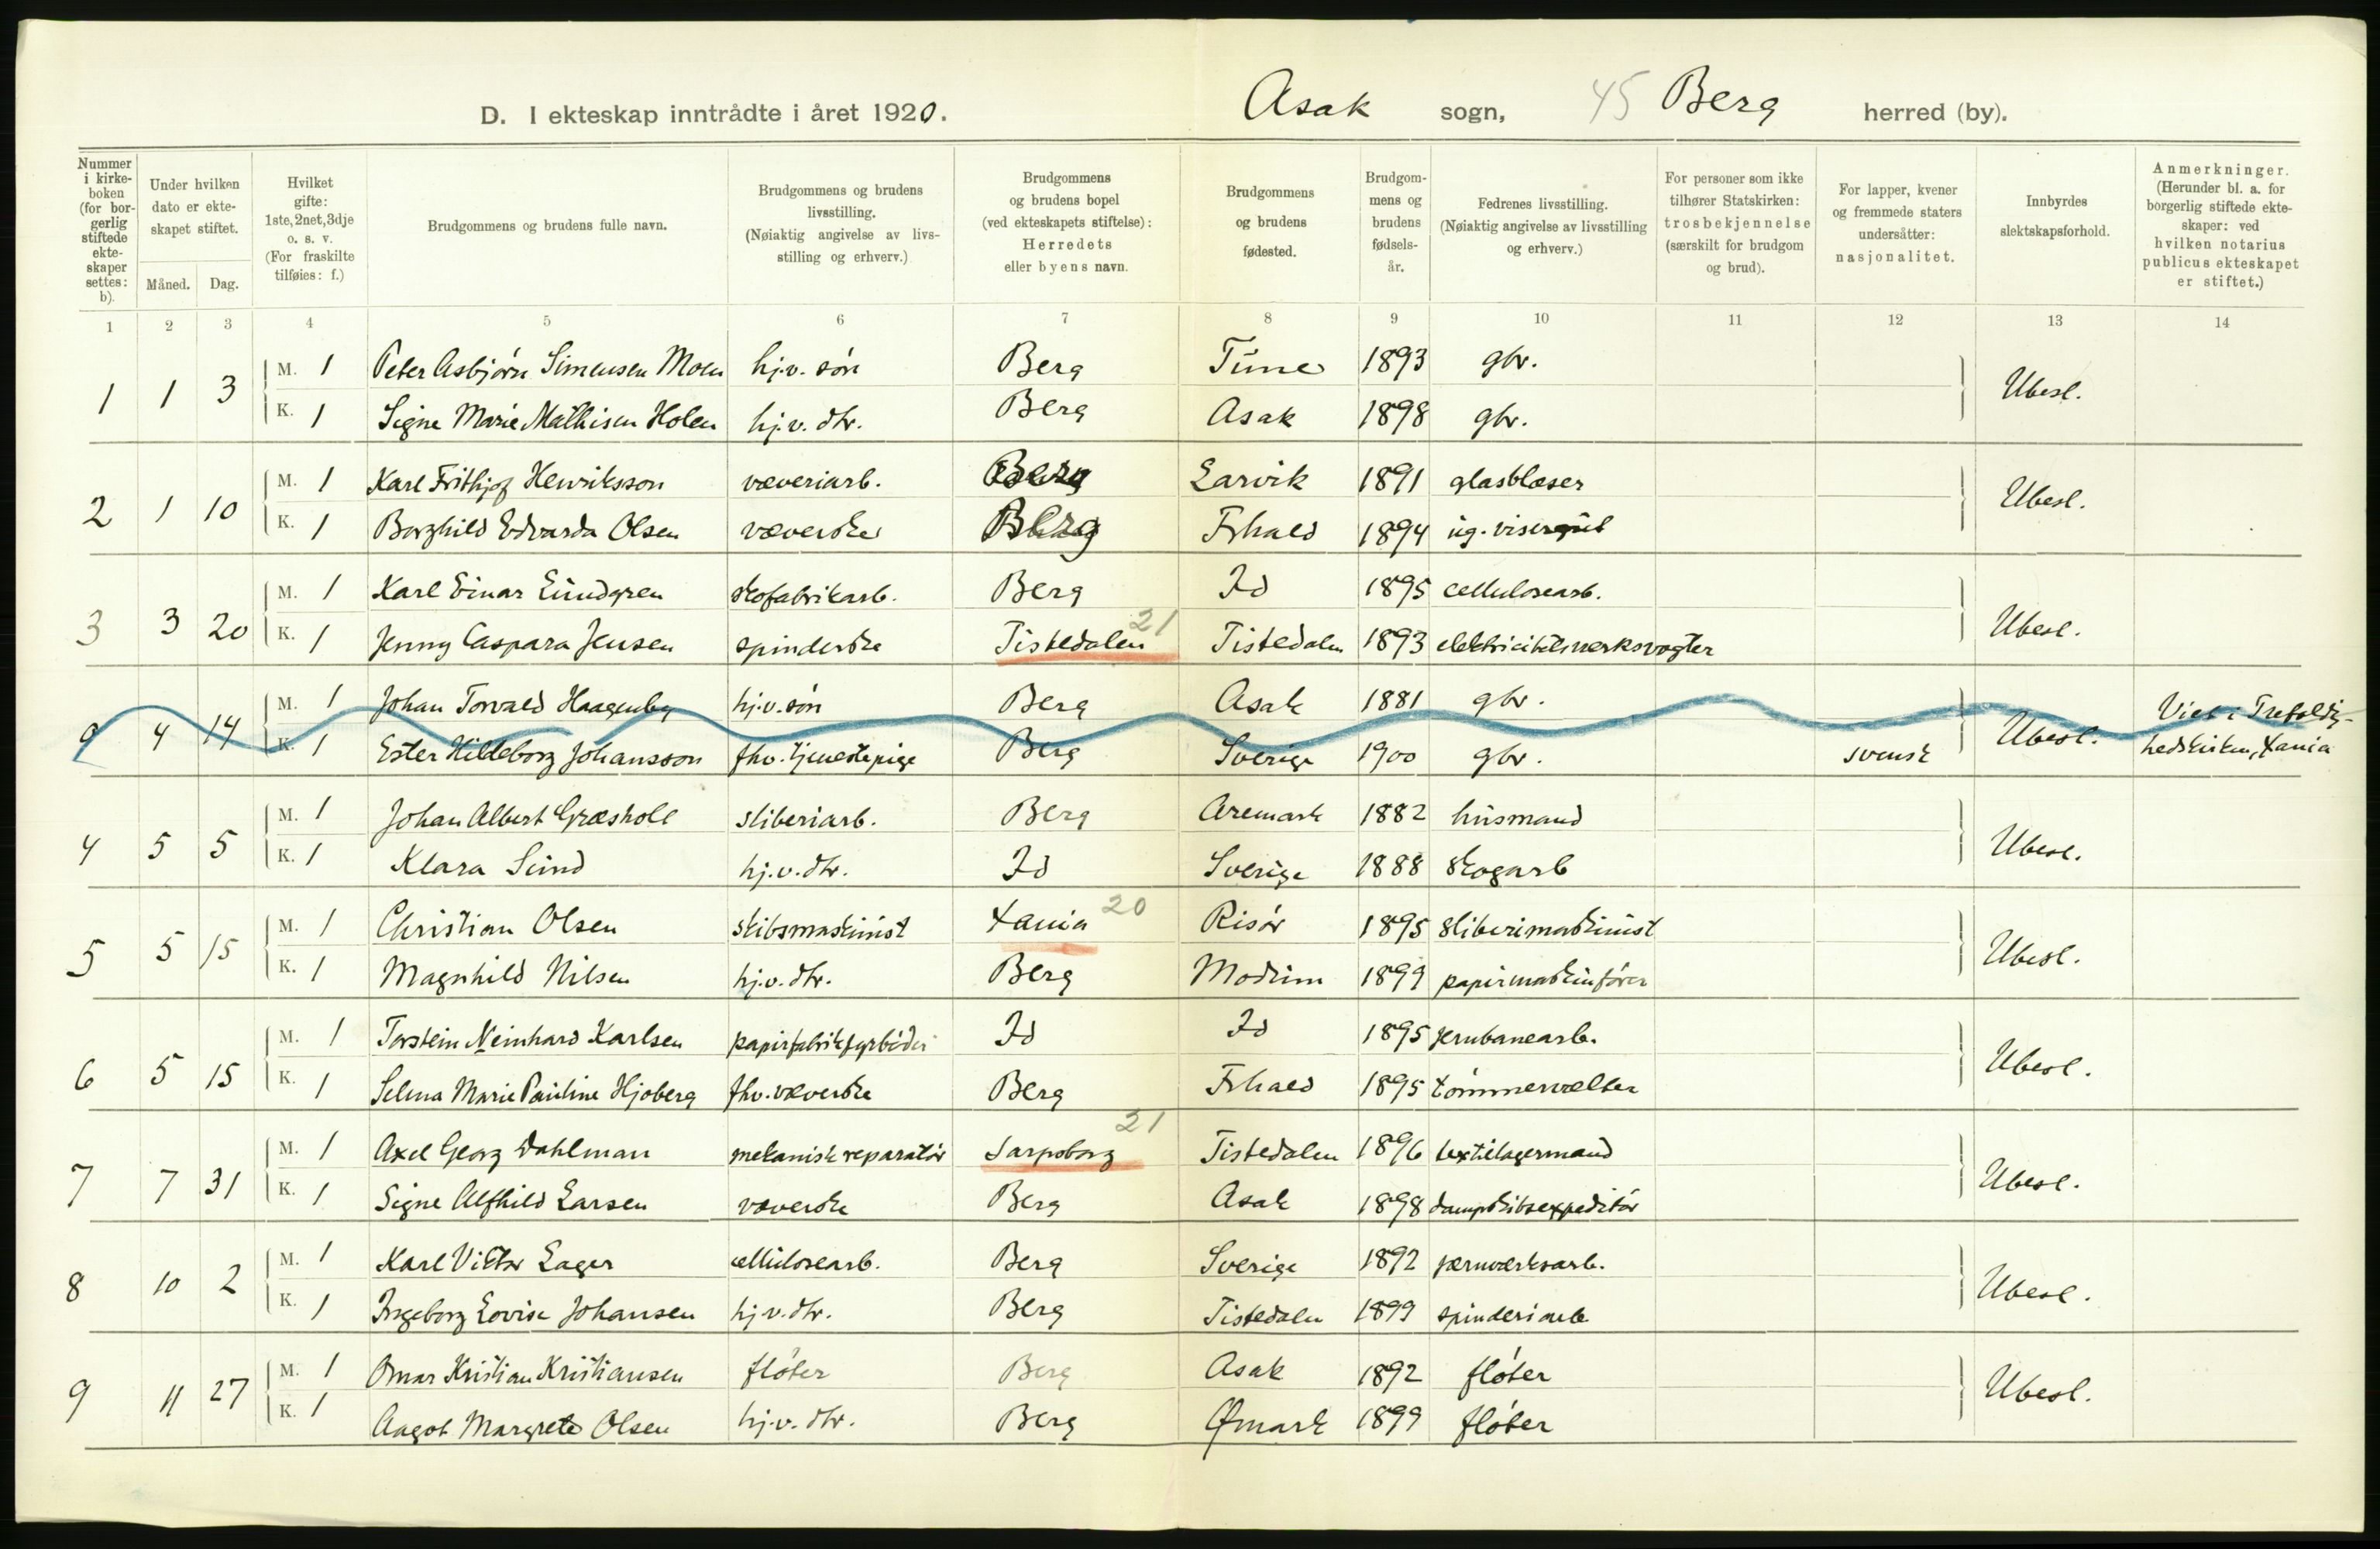 D. I ekteskap inntrådte i året 1920. Asak sogn, 45 Berg herred (by).
Nummer i kirke-boken (for bor-gerlig stiftede ekte-skaper settes: b).
Under hvilken dato er ekte-skapet stiftet.
Måned. Dag.
Hvilket gifte: 1ste, 2net, 3dje o. s. v. (For fraskilte tilføies: f.)
Brudgommens og brudens fulle navn.
Brudgommens og brudens livsstilling. (Nøiaktig angivelse av livs-stilling og erhverv.)
Brudgommens og brudens bopel (ved ekteskapets stiftelse): Herredets eller byens navn.
Brudgommens og brudens fødested.
Brudgom-mens og brudens fødsels-år.
Fedrenes livsstilling. (Nøiaktig angivelse av livsstilling og erhverv.)
For personer som ikke tilhører Statskirken: trosbekjennelse (særskilt for brudgom og brud).
For lapper, kvener og fremmede staters undersåtter: nasjonalitet.
Innbyrdes slektskapsforhold.
Anmerkninger. (Herunder bl. a. for borgerlig stiftede ekte-skaper: ved hvilken notarius publicus ekteskapet er stiftet.)
1 2 3 4 5 6 7 8 9 10 11 12 13 14
1 1 3 M. 1 Peter Asbjørn Simensen Moen hj.v. søn Berg Tune 1893 gbr. Ubesl.
K. 1 Signe Marie Mathisen Holen hj.v. dtr. Berg Asak 1898 gbr.
2 1 10 M. 1 Karl Frithjof Henriksson væveriarb. Berg Larvik 1891 glasblæser Ubesl.
K. 1 Borghild Edvarda Olsen væverske Berg Frhald 1894 ug. visergut
3 3 20 M. 1 Karl Einar Lundgren skofabrikarb. Berg Id 1895 cellulosearb. Ubesl.
K. 1 Jenny Caspara Jensen spinderske Tistedalen 21 Tistedalen 1893 elektricitetsverksvogter
9 4 14 M. 1 Johan Torvald Haagenby hj.v. søn Berg Asak 1881 gbr. Ubesl. Viet i Trefoldig-
K. 1 Ester Hildeborg Johansson fhv. tjenestepige Berg Sverige 1900 gbr. svensk hedskirken, Xania
4 5 5 M. 1 Johan Albert Græsholl sliberiarb. Berg Aremark 1882 husmand Ubesl.
K. 1 Klara Lund hj.v. dtr. Id Sverige 1888 skogarb
5 5 15 M. 1 Christian Olsen skibsmaskinist Xania 20 Risør 1895 sliberimaskinist Ubesl.
K. 1 Magnhild Nilsen hj.v. dtr. Berg Modum 1899 papirmaskinfører
6 5 15 M. 1 Torstein Meinhard Karlsen papirfabrikfyrbøder Id Id 1895 jernbanearb. Ubesl.
K. 1 Selma Marie Pauline Hjoberg fhv. væverske Berg Frhald 1895 tømmervælter
7 7 31 M. 1 Axel Georg Dahlman mekanisk reparatør Sarpsborg 21 Tistedalen 1896 textillagermand Ubesl.
K. 1 Signe Alfhild Larsen væverske Berg Asak 1898 dampskibsexpeditør
8 10 2 M. 1 Karl Viktor Lager cellulosearb. Berg Sverige 1892 jernverksarb. Ubesl.
K. 1 Ingeborg Lovise Johansen hj.v. dtr. Berg Tistedalen 1899 spinderiarb.
9 11 27 M. 1 Omar Kristian Kristiansen fløter Berg Asak 1892 fløter Ubesl.
K. 1 Aagot Margrete Olsen hj.v. dtr. Berg Ømark 1899 fløter